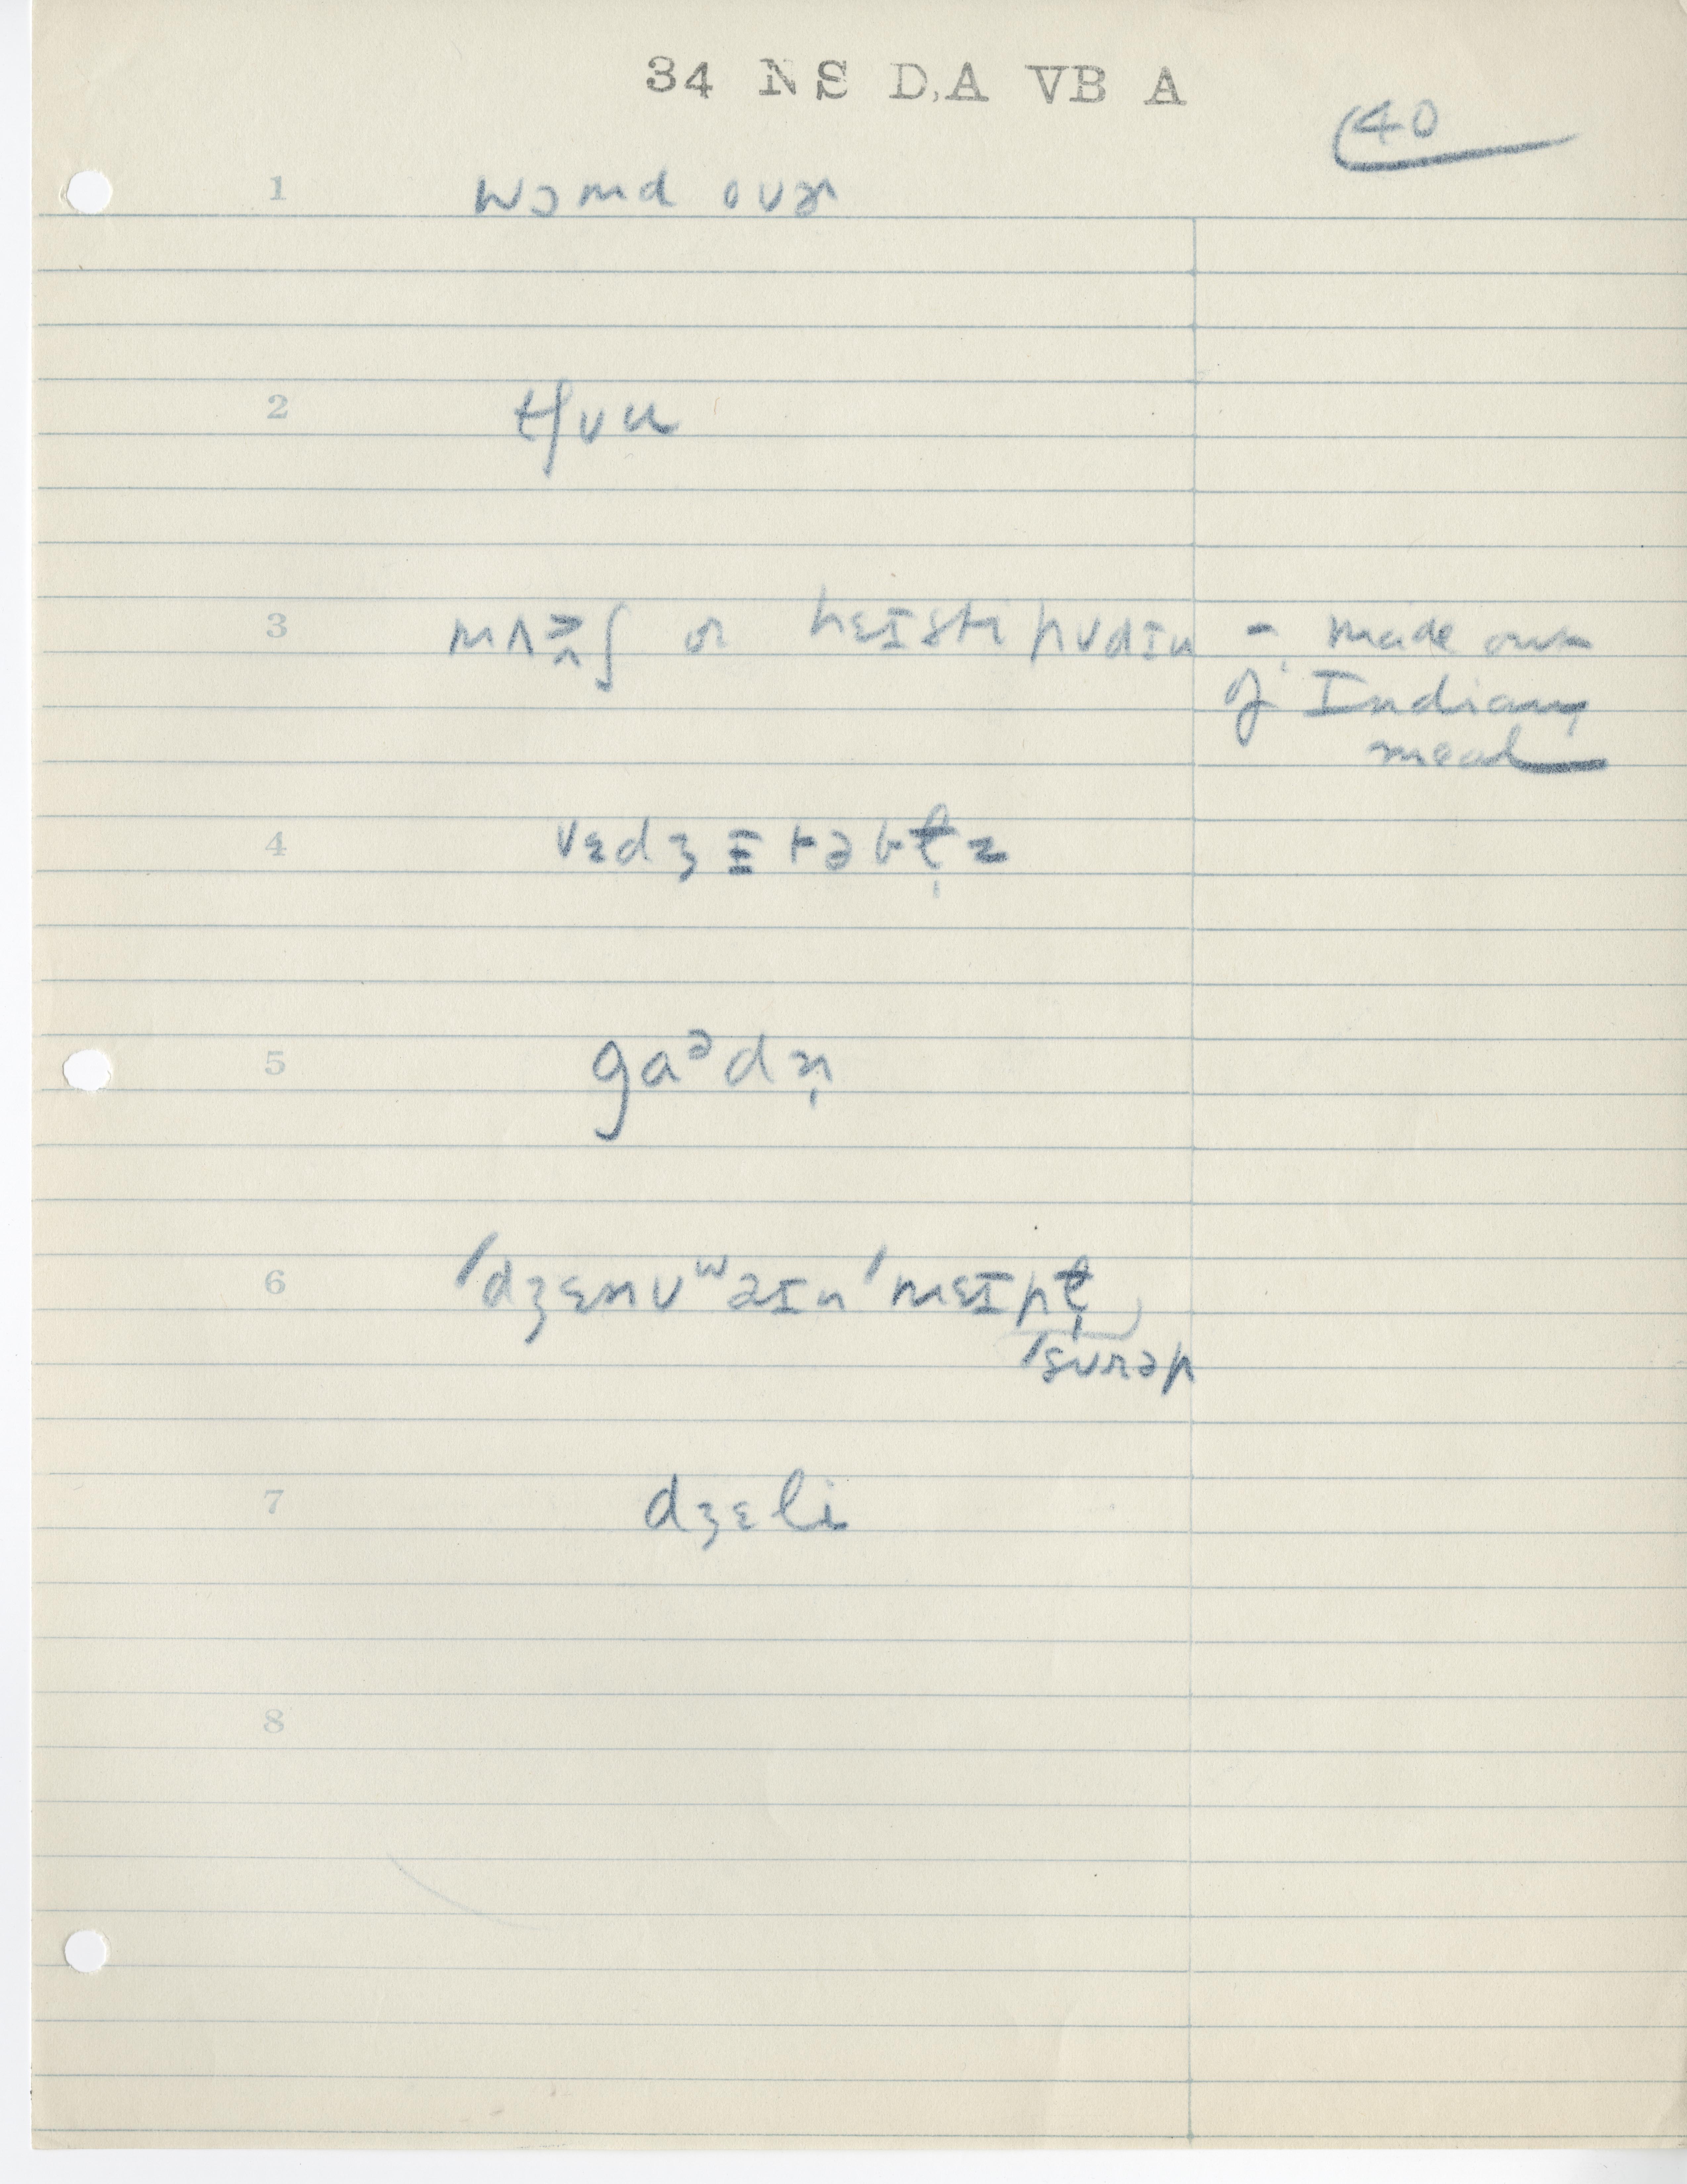 34 NS D,A VB A
40
1 wɔmd ovɚ
2 tʃuu
3 mʌʃ or hɛɪsti pʊdɪn - made out
of Indian
meal
4 vɛdʒɪtəbl̩z
5 gaᵊdn̩
6 ˈdʒɛnʊʷəɪn ˈmɛɪpl̩
ˈsʊrəp
7 dʒɛli
8